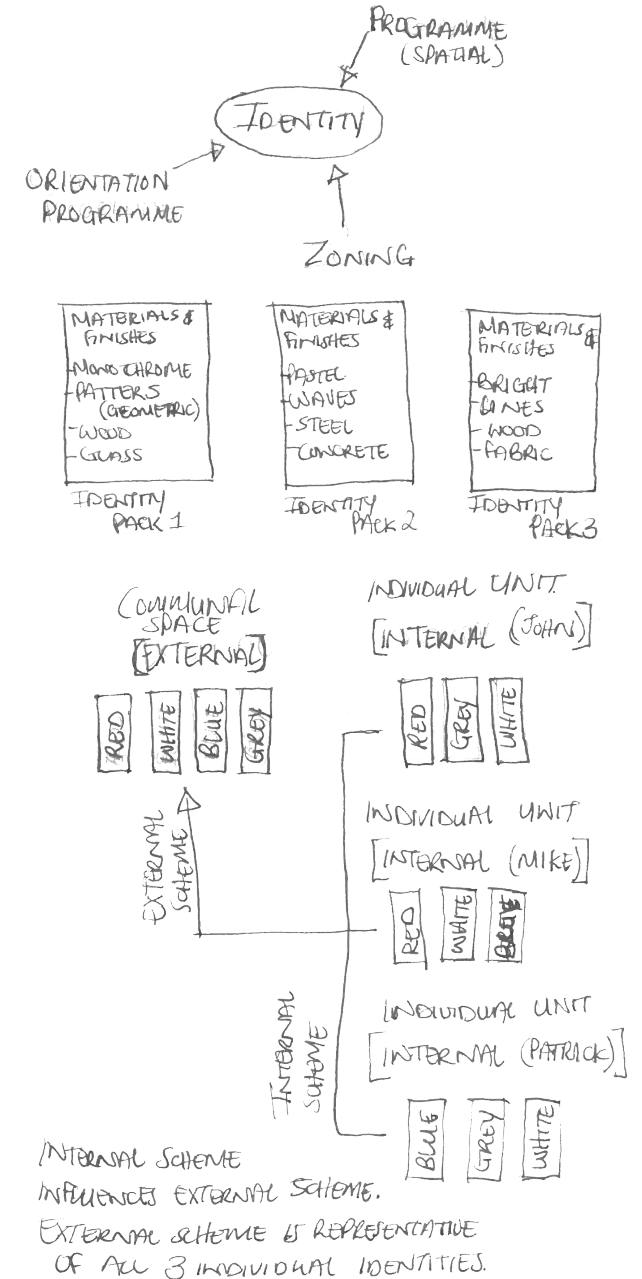 PROGRAMME
(SPATIAL)
IDENTITY
ORIENTATION
PROGRAMME
ZONING
MATERIALS &
FINISHES
-MONOCHROME
-PATTERS
(GEOMETRIC)
-WOOD
-GLASS
IDENTITY
PACK 1
MATERIALS &
FINISHES
-PASTEL
-WAVES
-STEEL
-CONCRETE
IDENTITY
PACK 2
MATERIALS &
FINISHES
-BRIGHT
-LINES
-WOOD
-FABRIC
IDENTITY
PACK 3
COMMUNAL
SPACE
[EXTERNAL]
RED
WHITE
BLUE
GREY
EXTERNAL
SCHEME
INDIVIDUAL UNIT
[INTERNAL (JOHN)]
RED
GREY
WHITE
INDIVIDUAL UNIT
[INTERNAL (MIKE)]
RED
WHITE
INTERNAL
SCHEME
INDIVIDUAL UNIT
[INTERNAL (PATRICK)]
BLUE
GREY
WHITE
INTERNAL SCHEME
INFLUENCES EXTERNAL SCHEME.
EXTERNAL SCHEME IS REPRESENTATIVE
OF ALL 3 INDIVIDUAL IDENTITIES.